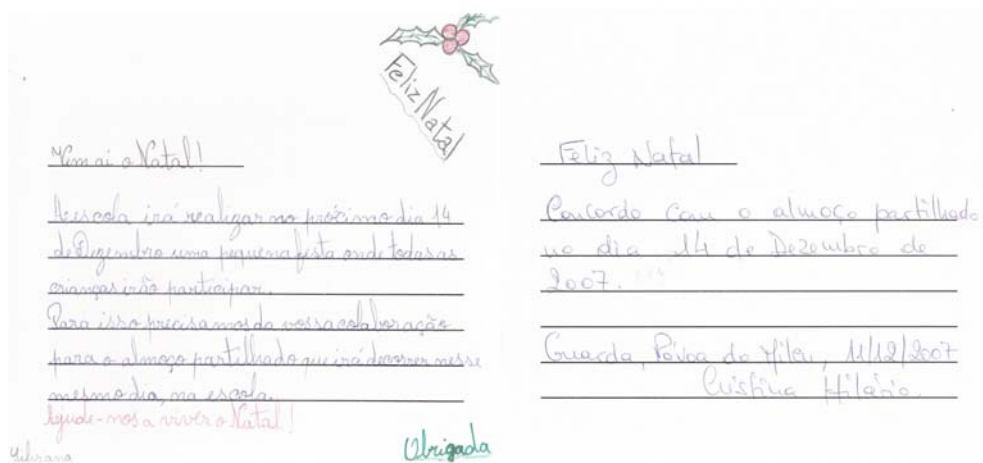 Feliz Natal
Vem aí o Natal!
A escola irá realizar no próximo dia 14
de Dezembro uma pequena festa onde todas as
crianças irão participar.
Para isso precisamos da vossa colaboração
para o almoço partilhado que irá decorrer nesse
mesmo dia, na escola.
Ajude-nos a viver o Natal!
Obrigada
Feliz Natal
Concordo com o almoço partilhado
no dia 14 de Dezembro de
2007.
Guarda, Póvoa do Mileu, 11/12/2007
Cristina Hilário.